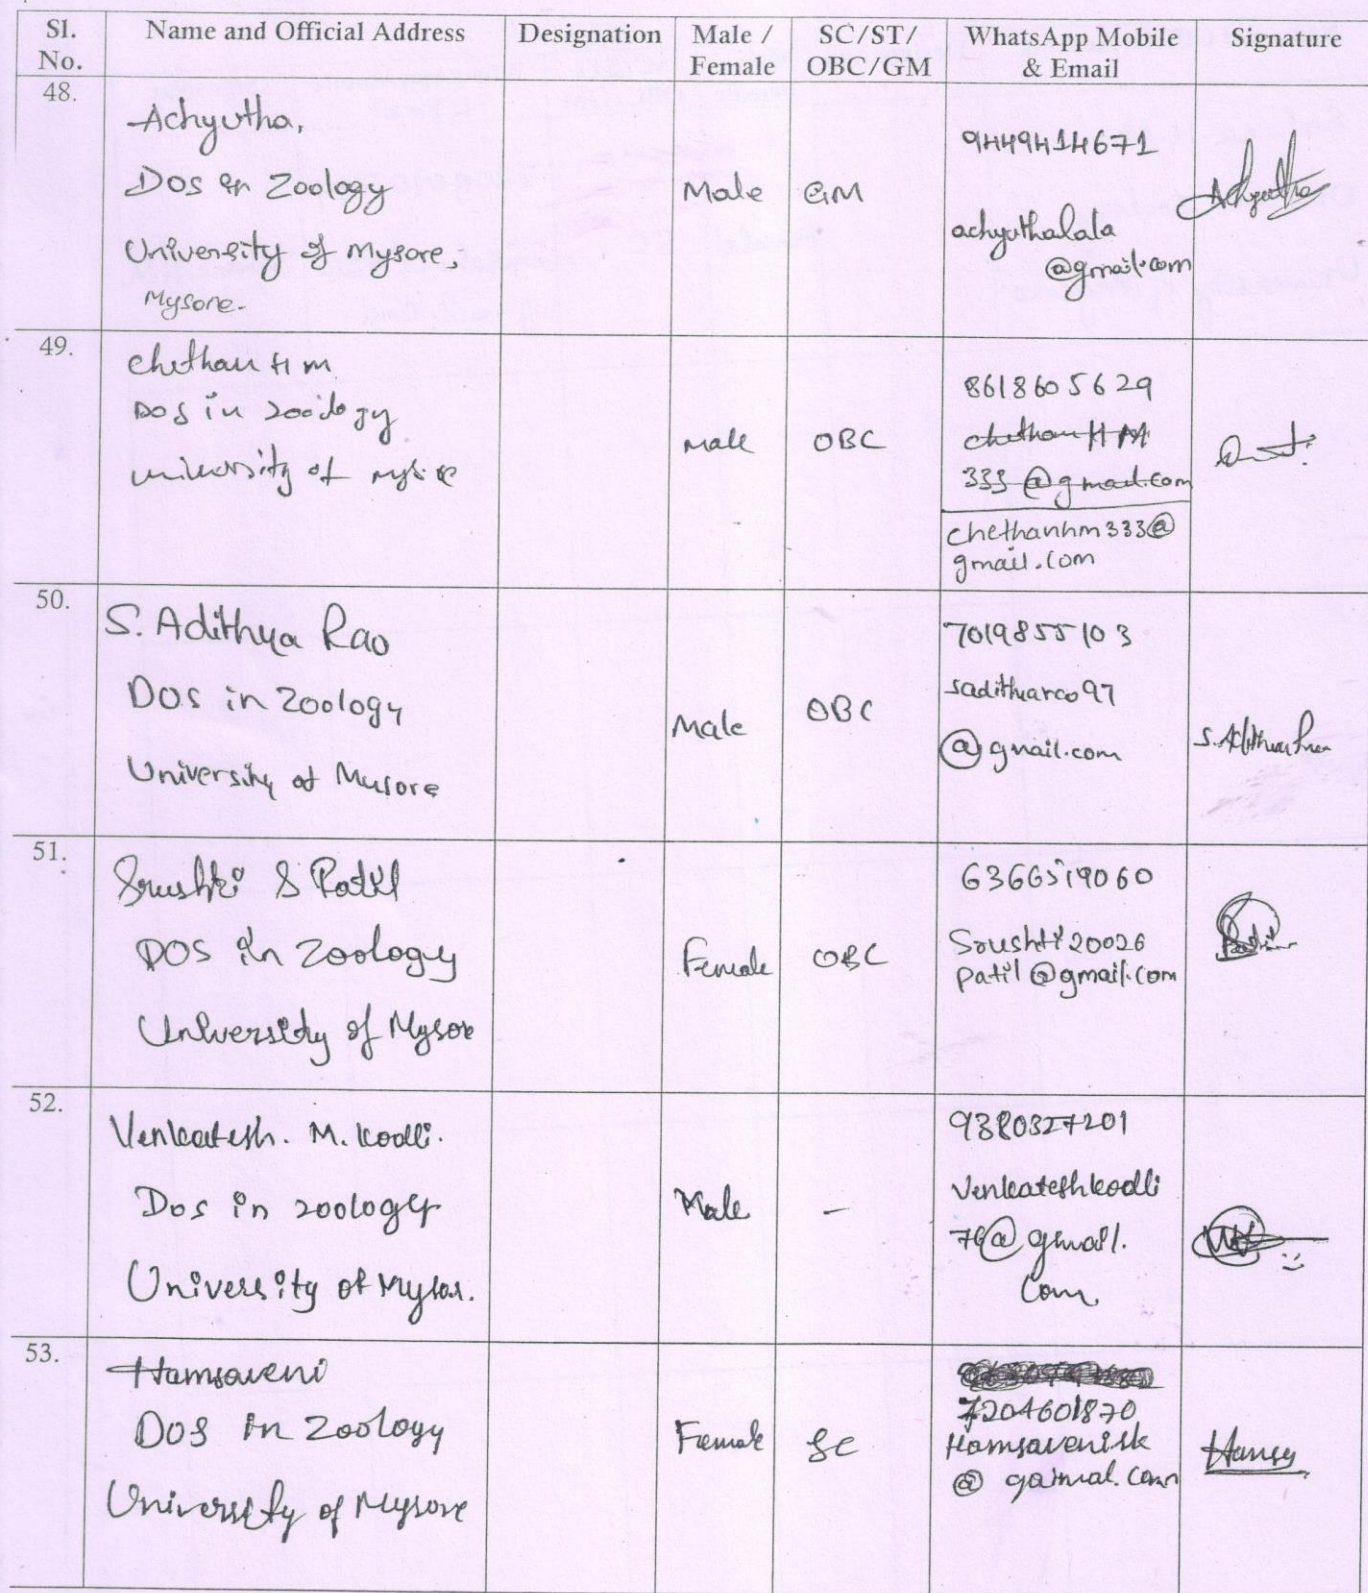 Sl. No. Name and Official Address Designation Male / Female SC/ST/ OBC/GM WhatsApp Mobile & Email Signature
48.
Achyutha,
DOS in Zoology
University of Mysore,
Mysore.
Male
GM
9449414671
achyuthalala
@gmail.com
Achyutha
49.
Chethan H M
DOS in zoology
university of
Male
OBC
8618605629
chethan H M
333 @gmail.com
chethanhm333@
gmail.com
50.
S. Adithya Rao
DOS in Zoology
University of Musore
Male
OBC
7019855103
@gmail.com
51.
Srushti S Patil
DOS in Zoology
University of Mysore
Female
OBC
6366519060
patil@gmail.com
52.
Venkatesh. M. Kodli.
Dos in zoology
University of
Male
-
9380327201
Venkateshkodli
76@gmail.
Com.
53.
Hamsaveni
DOS in Zoology
University of Mysore
Female
SC
7204601870
Hamsavenisk